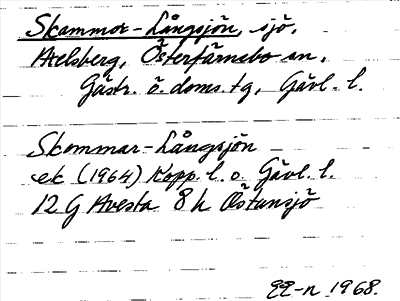 Skammar-Långsjön, sjö,
Axelsberg, Österfärnebo sn,
Gästr. ö. doms. tg, Gävl. l.
Skommar-Långsjön
ek (1964) Kopp. l. o. Gävl. l.
12 G Avesta 8 h Östansjö
1968.